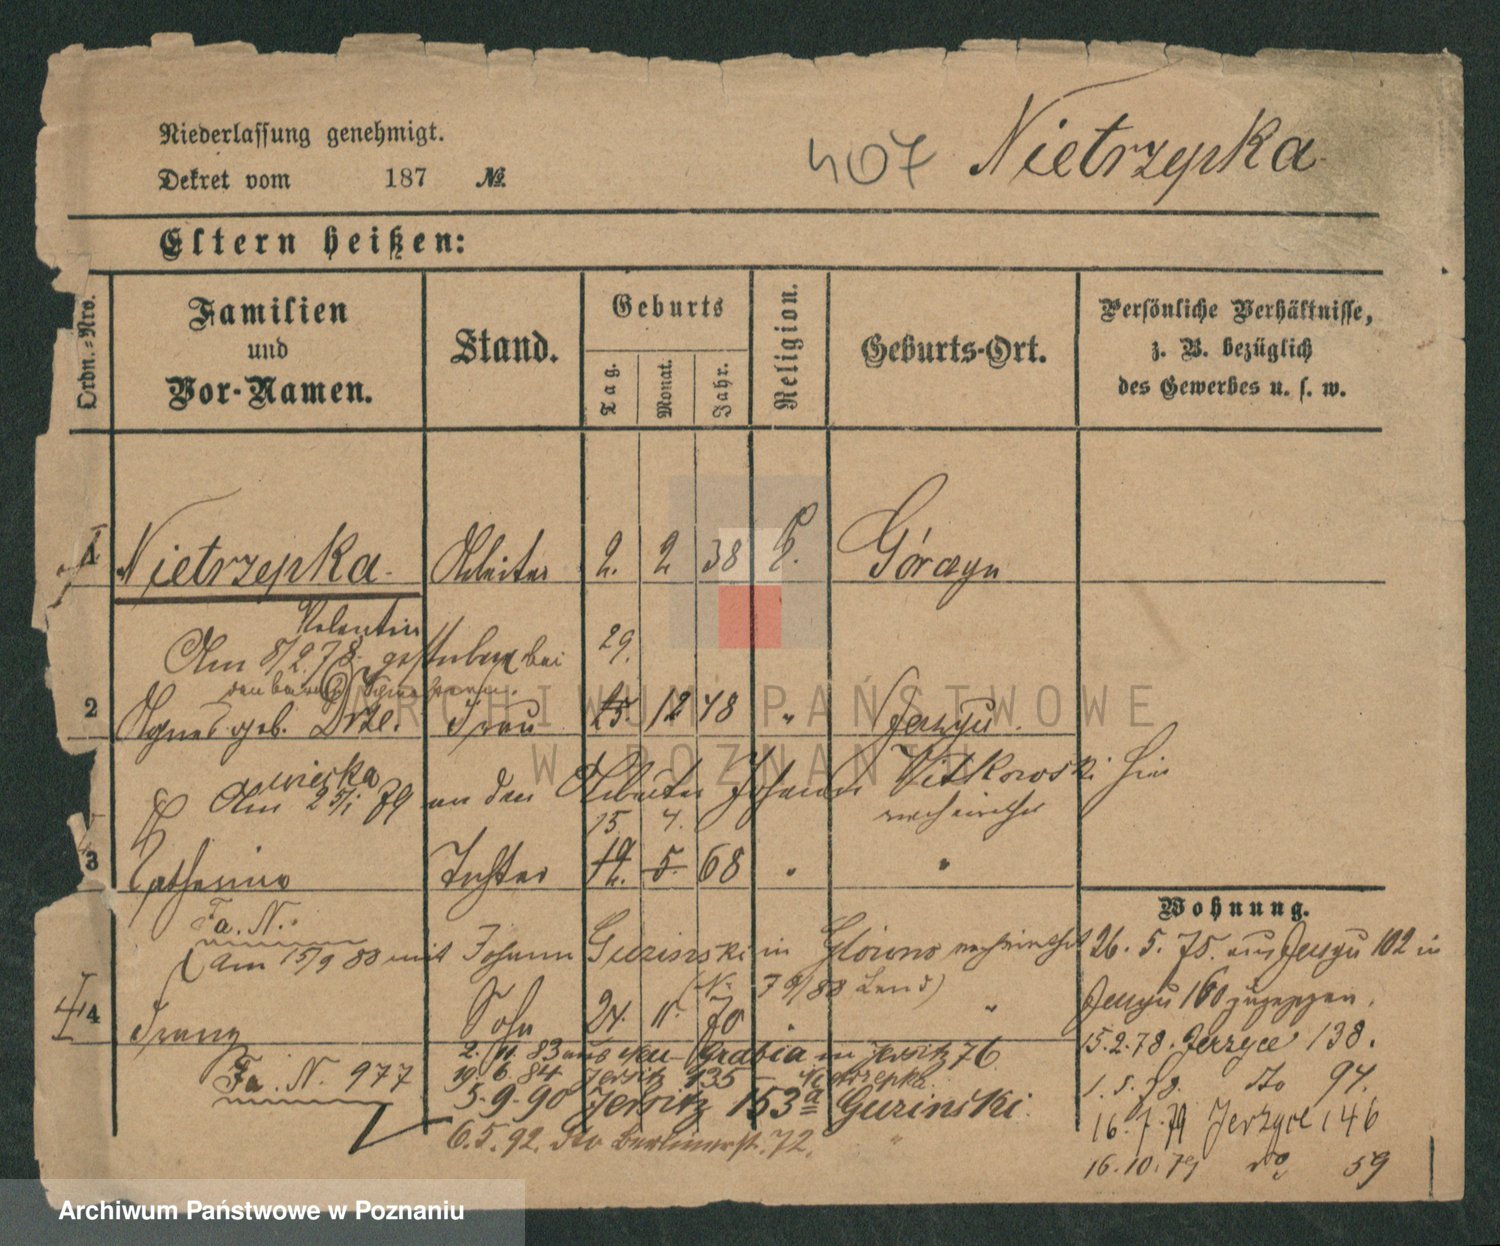 Niederlassung genehmigt.
407 Nietrzepka
Dekret vom 187 №
Eltern heißen:
Ordn.=Nro.
Familien
und
Vor-Namen.
Stand.
Geburts
Tag.
Monat.
Jahr.
Religion.
Geburts-Ort.
Persönliche Verhältnisse,
z. B. bezüglich
des Gewerbes u. s. w.
1 Nietrzepka Arbeiter 2. 2 38
Valentin
Am 8/2 78 gestorben bei
29.
2 Agnes geb. Drze. Frau 25. 12 48 "
wieska
Am 25/1 79 an den Arbeiter Johann Witkowski
15. 4.
3 Catharina Tochter 19. 5. 68 " "
Wohnung.
Fa. N.
Am 15/9 88 mit Johann Guzinski in verheirathet
26. 5. 75. aus 102 in
160 zugezogen.
4 Franz Sohn 24. 11. 70 " "
15.2.78. Jerzyce 138.
2. 11. 83 aus Grabia in Jersitz 76
Fa. N. 977
19. 6. 84 Jersitz 135 Nietrzepka
1. 5. 78. dto 94.
5-9-90 Jersitz 153a Guzinski.
16. 7. 79 Jerzyce 146
6.5.92. dto Berlinerstr. 72. "
16.10.79 do 59
ARCHIWUM PAŃSTWOWE
W POZNANIU
Archiwum Państwowe w Poznaniu